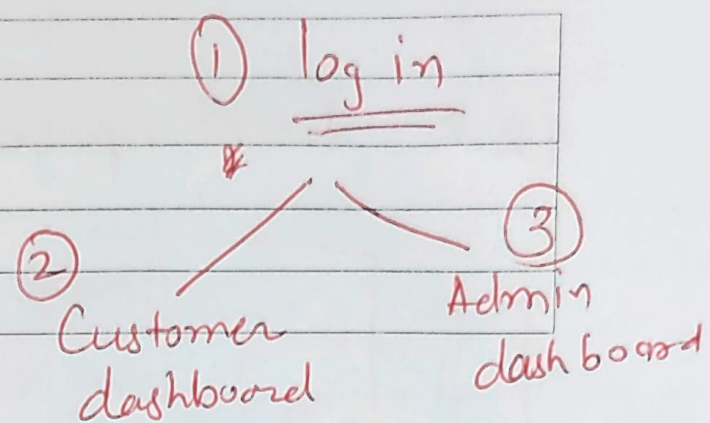 ① log in
②
Customer
dashboard
③
Admin
dashboard